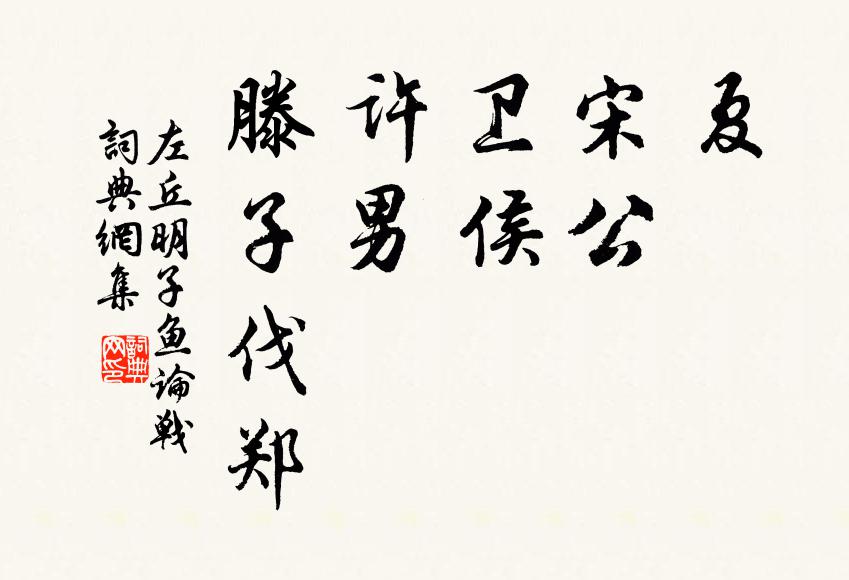 夏
宋公
卫侯
许男
滕子伐郑
左丘明子鱼论戰
詞典網集
詞典
网印